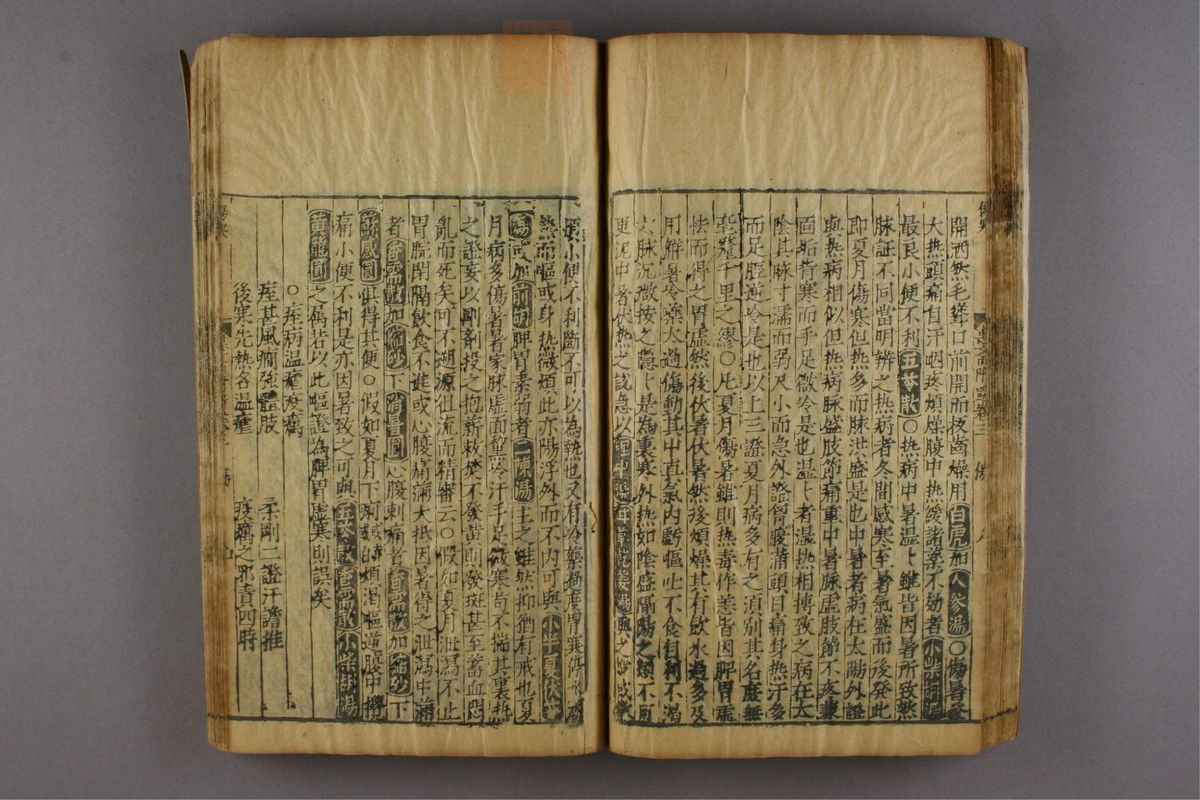 開西然毛聳口前開而板齒燥用白虎加人參湯○傷暑發
大熱頭痛自汗咽疼煩燥腹中熱緩諸藥不効者小柴胡湯
最良小便不利五苓散○熱病中暑温〻雖皆因暑所致然
脉証不同當明辨之熱病者冬間感寒至暑氣盛而後發此
即夏月傷寒但熱多而脉洪盛是也中暑者病在太陽外證
與熱病相似但熱病脉盛肢節痛重中暑脉虛肢節不疼兼
面垢背寒而手足微冷是也温〻者湿熱相搏致之病在太
陰其脉寸濡而弱尺小而急外證骨寢滿頭目痛身熱汗多
而足脛逆冷是也以上三證夏月病多有之須別其名庶無
毫釐千里之繆○凡夏月傷暑雖則熱毒作恙皆因脾胃濡
怯而得之胃虛然後伏暑伏暑然後煩燥其有飲水過多及
用解暑冷藥大過傷動其中直氣內虧嘔吐不食自利不渴
六脉沉微按之隱〻是為裏寒外熱如陰盛隔陽之類不可
更泥中暑伏熱之說急以理中湯
小便不利斷不可以為熱也又有冷藥過度
而嘔或身熱微煩此亦陽浮外而不內可與小半夏茯苓
湯或加前胡脾胃素弱者二陳湯主之雖然抑猶有戒也夏
月病多傷暑暑家脉虛面垢冷汗手足微寒苟不揣其裏熱
之證妄以剛劑投之抱薪救焚不發黃則發斑甚至蓄血悶
亂而死矣可不遡源徂流而精審云○假如夏月泄瀉不止
胃脘閉隔飲食不進或心腹痛滿大抵因暑得之泄瀉中滿
者香薷散加縮砂下消暑圓心腹刺痛者香薷散加縮砂下
蘇感圓俱得其便○假如夏月下痢或的煩渴嘔逆腹中攪
痛小便不利是亦因暑致之可與五苓散香薷散小柴胡湯
黃龍圓之屬若以此嘔證為脾胃虛寒則誤矣
○痓病温瘧疫癘
痓其風癇強體肢　柔剛二證汗譫推
後寒先熱名温瘧　疫癘之邪責四時
傷寒
傷寒